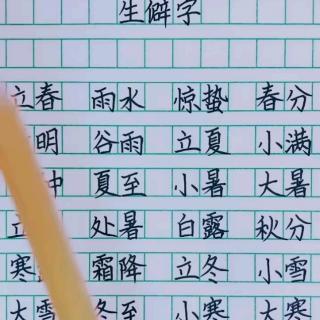 生僻字
立春 雨水 惊蛰 春分
明 谷雨 立夏 小满
夏至 小暑 大暑
立 处暑 白露 秋分
寒 霜降 立冬 小雪
大雪 冬至 小寒 大寒